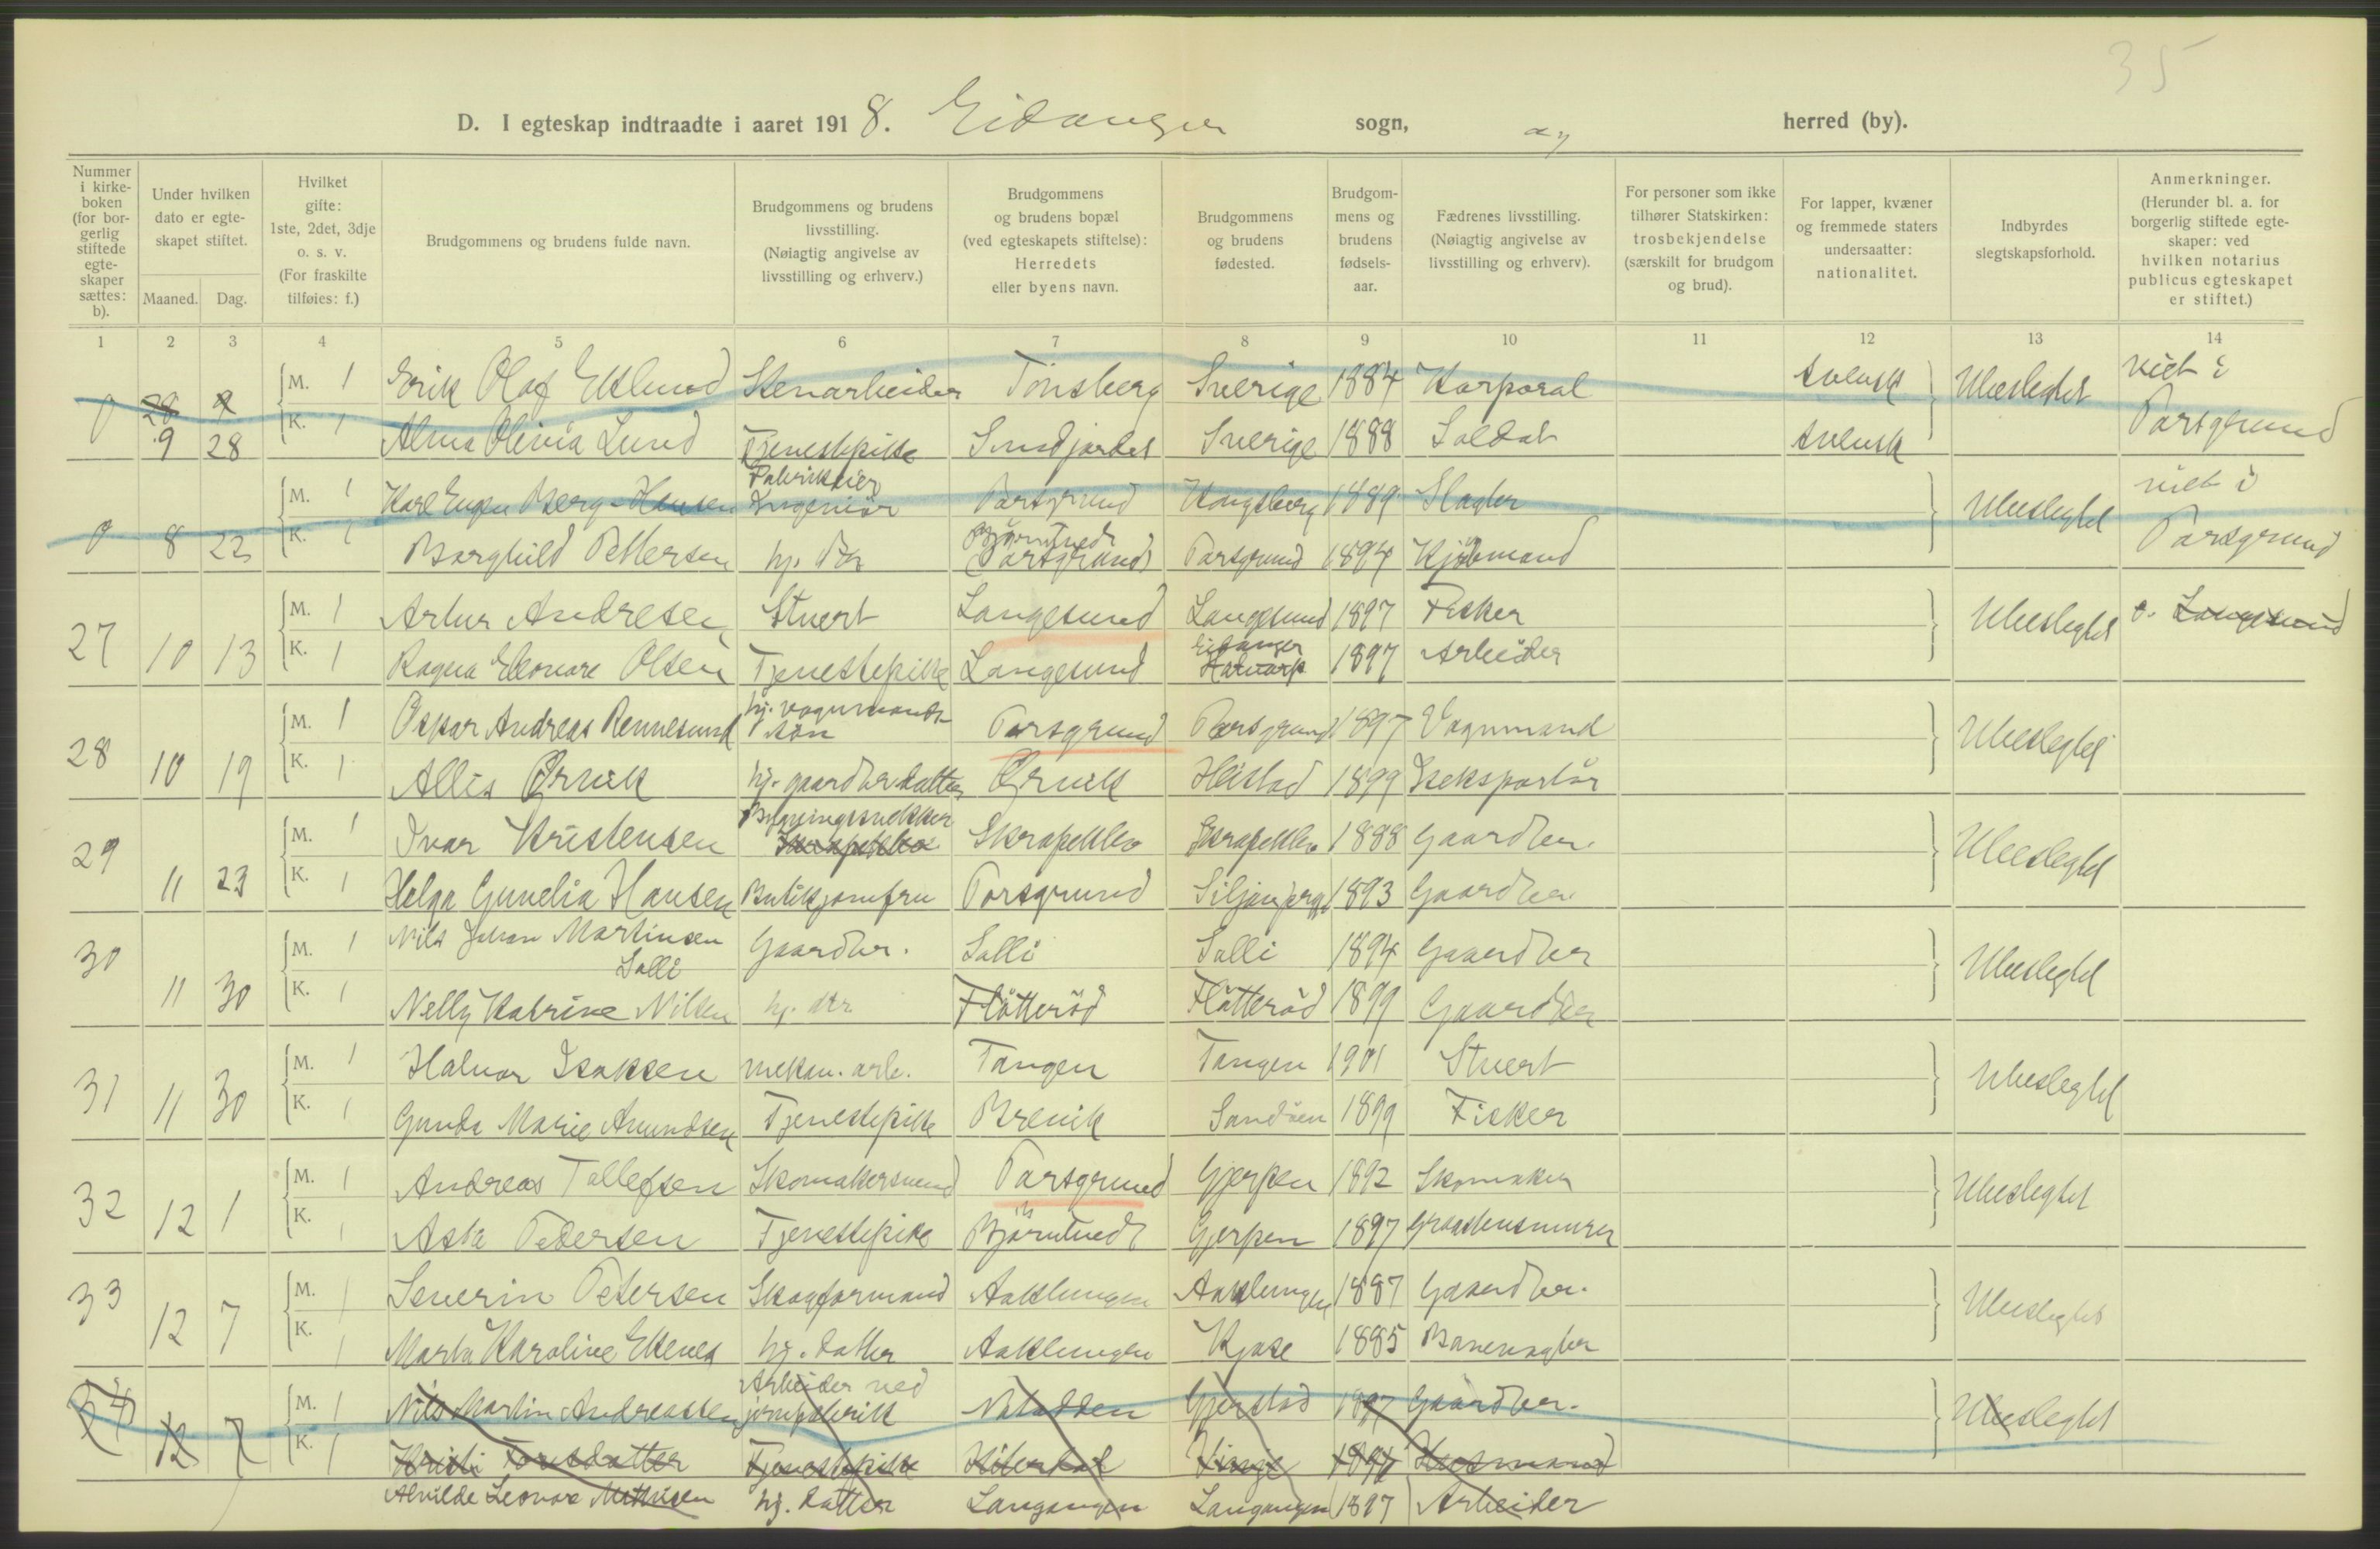 35
D. I egteskap indtraadte i aaret 1918. Eidanger sogn, herred (by).
Nummer i kirkeboken (for borgerlig stiftede egteskaper sættes: b).
Under hvilken dato er egteskapet stiftet.
Maaned. Dag.
Hvilket gifte: 1ste, 2det, 3dje o. s. v. (For fraskilte tilføies: f.)
Brudgommens og brudens fulde navn.
Brudgommens og brudens livsstilling. (Nøiagtig angivelse av livsstilling og erhverv.)
Brudgommens og brudens bopæl (ved egteskapets stiftelse): Herredets eller byens navn.
Brudgommens og brudens fødested.
Brudgommens og brudens fødselsaar.
Fædrenes livsstilling. (Nøiagtig angivelse av livsstilling og erhverv).
For personer som ikke tilhører Statskirken: trosbekjendelse (særskilt for brudgom og brud).
For lapper, kvæner og fremmede staters undersaatter: nationalitet.
Indbyrdes slegtskapsforhold.
Anmerkninger. (Herunder bl. a. for borgerlig stiftede egteskaper: ved hvilken notarius publicus egteskapet er stiftet.)
1 2 3 4 5 6 7 8 9 10 11 12 13 14
0 28 9 M. 1 Erik Olof Eklund Stenarbeider Tönsberg Sverige 1884 Korporal svensk Ubeslegtet viet i
9 28 K. 1 Alma Olivia Lund Tjenestepike Sverige 1888 Soldat svensk Porsgrund
0 8 22 M. 1 Karl Eugen Berg-Hansen Fabrikeier Ingeniör Porsgrund Kongsberg 1889 Slagter Ubeslegtet viet i
K. 1 Borghild Pettersen hj. dtr Björntvedt Porsgrund Porsgrund 1894 Kjöbmand Porsgrund
27 10 13 M. 1 Artur Andresen Stuert Langesund Langesund 1897 Fisker Ubeslegtet Langesund
K. 1 Ragna Eleonore Olsen Tjenestepike Langesund Eidanger 1897 Arbeider
28 10 19 M. 1 Oskar Andreas Rennesund hj. vognmands sön Porsgrund Porsgrund 1897 Vognmand Ubeslegtet
K. 1 Allis Örvik hj. gaardbr datter Örvik Heistad 1899 Iseksportör
29 11 23 M. 1 Ivar Kristensen Bygningssnekker Skrapeklev Skrapeklev Skrapeklev 1888 Gaardbr. Ubeslegtet
K. 1 Helga Gunelia Hansen Butikjomfru Porsgrund 1893 Gaardbr.
30 11 30 M. 1 Nils Johan Martinsen Salli Gaardbr. Salli Salli 1894 Gaardbr Ubeslegtet
K. 1 Nelly Katrine Nilsen hj. dtr Flötteröd Flötteröd 1899 Gaardbr
31 11 30 M. 1 Halvor Isaksen mekan. arb. Tangen Tangen 1901 Stuert Ubeslegtet
K. 1 Gunda Marie Amundsen Tjenestepike Brevik Sandöen 1899 Fisker
32 12 1 M. 1 Andreas Tollefsen Skomakersvend Porsgrund Gjerpen 1892 Skomaker Ubeslegtet
K. 1 Asta Pedersen Tjenestepike Björntvedt Gjerpen 1897 Graastensmurer
33 12 7 M. 1 Severin Petersen Skogformand Aaklungen Aaklungen 1887 Gaardbr. Ubeslegtet
K. 1 Marta Karoline Ekenes hj. datter Aaklungen Kjose 1885 Banevogter
34 12 7 M. 1 Nils Martin Andreassen Arbeider ved jernfabrik Notodden Gjerstad 1897 Gaardbr. Ubeslegtet
K. 1 Kristi Toresdatter Tjenestepike Hiterdal 1894 Husmand
Alvilde Leonore Mathisen hj. datter Langangen Langangen 1897 Arbeider